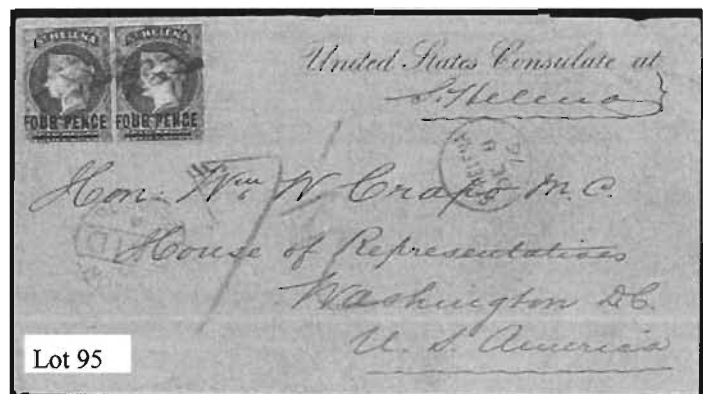 ST HELENA ST HELENA
FOUR PENCE FOUR PENCE
United States Consulate at
St. Helena
HELENA
DE
76
Hon. Wm W Crapo M.C.
House of Representatives
Washington D.C.
U. S. America
PAID
Lot 95